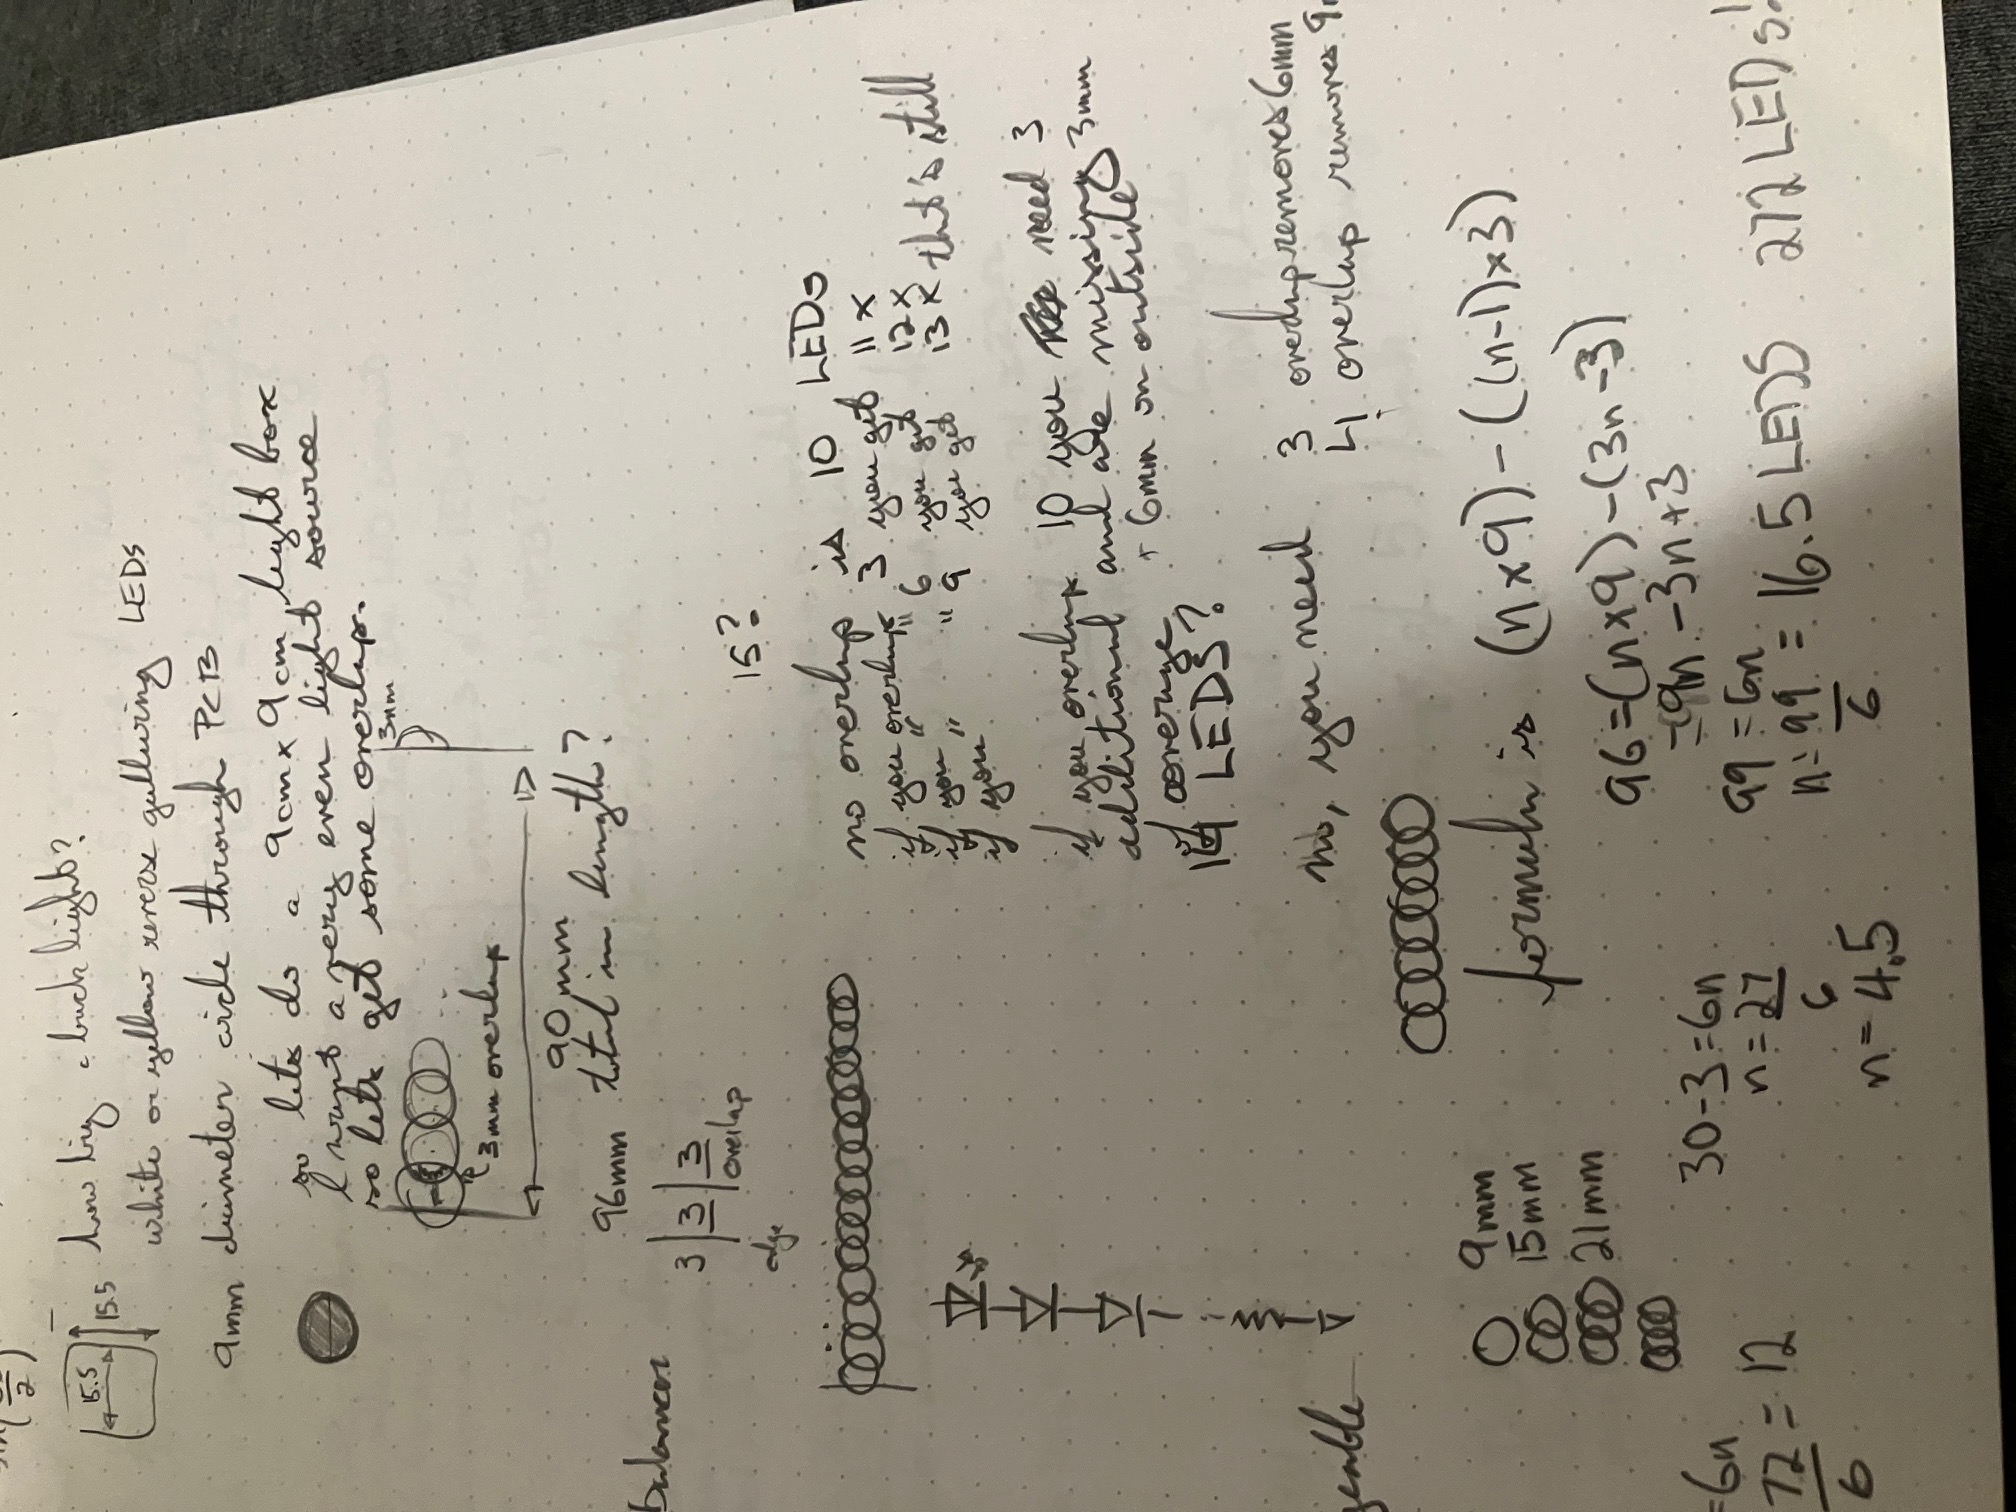 15.5
15.5
how big a back light?
white or yellow reverse gullwing LEDs
9mm diameter circle through PCB
so lets do a 9cm x 9cm light box
I want a very even light source
so lets get some overlap.
3mm
3mm overlap
90mm
96mm total in length?
3|3|3
edge overlap
15?
balancer
no overlap is 10 LEDs
if you overlap 3 you get 11 x
if you " 6 you get 12 x
if you " 9 you get 13 x that is still
if you overlap 10 you need 3
additional and are missing 3mm
coverage + 6mm on outside
14 LEDS?
no, you need 3 overlap removes 6mm
4 overlap removes
formula is (n x 9) - ((n-1) x 3)
96=(n x 9)-(3n-3)
=9n-3n+3
99=6n
n=99/6 = 16.5 LEDS 272 LEDS!
9mm
15mm
21mm
30-3=6n
n=27/6
n=4.5
=6n
72/6 = 12